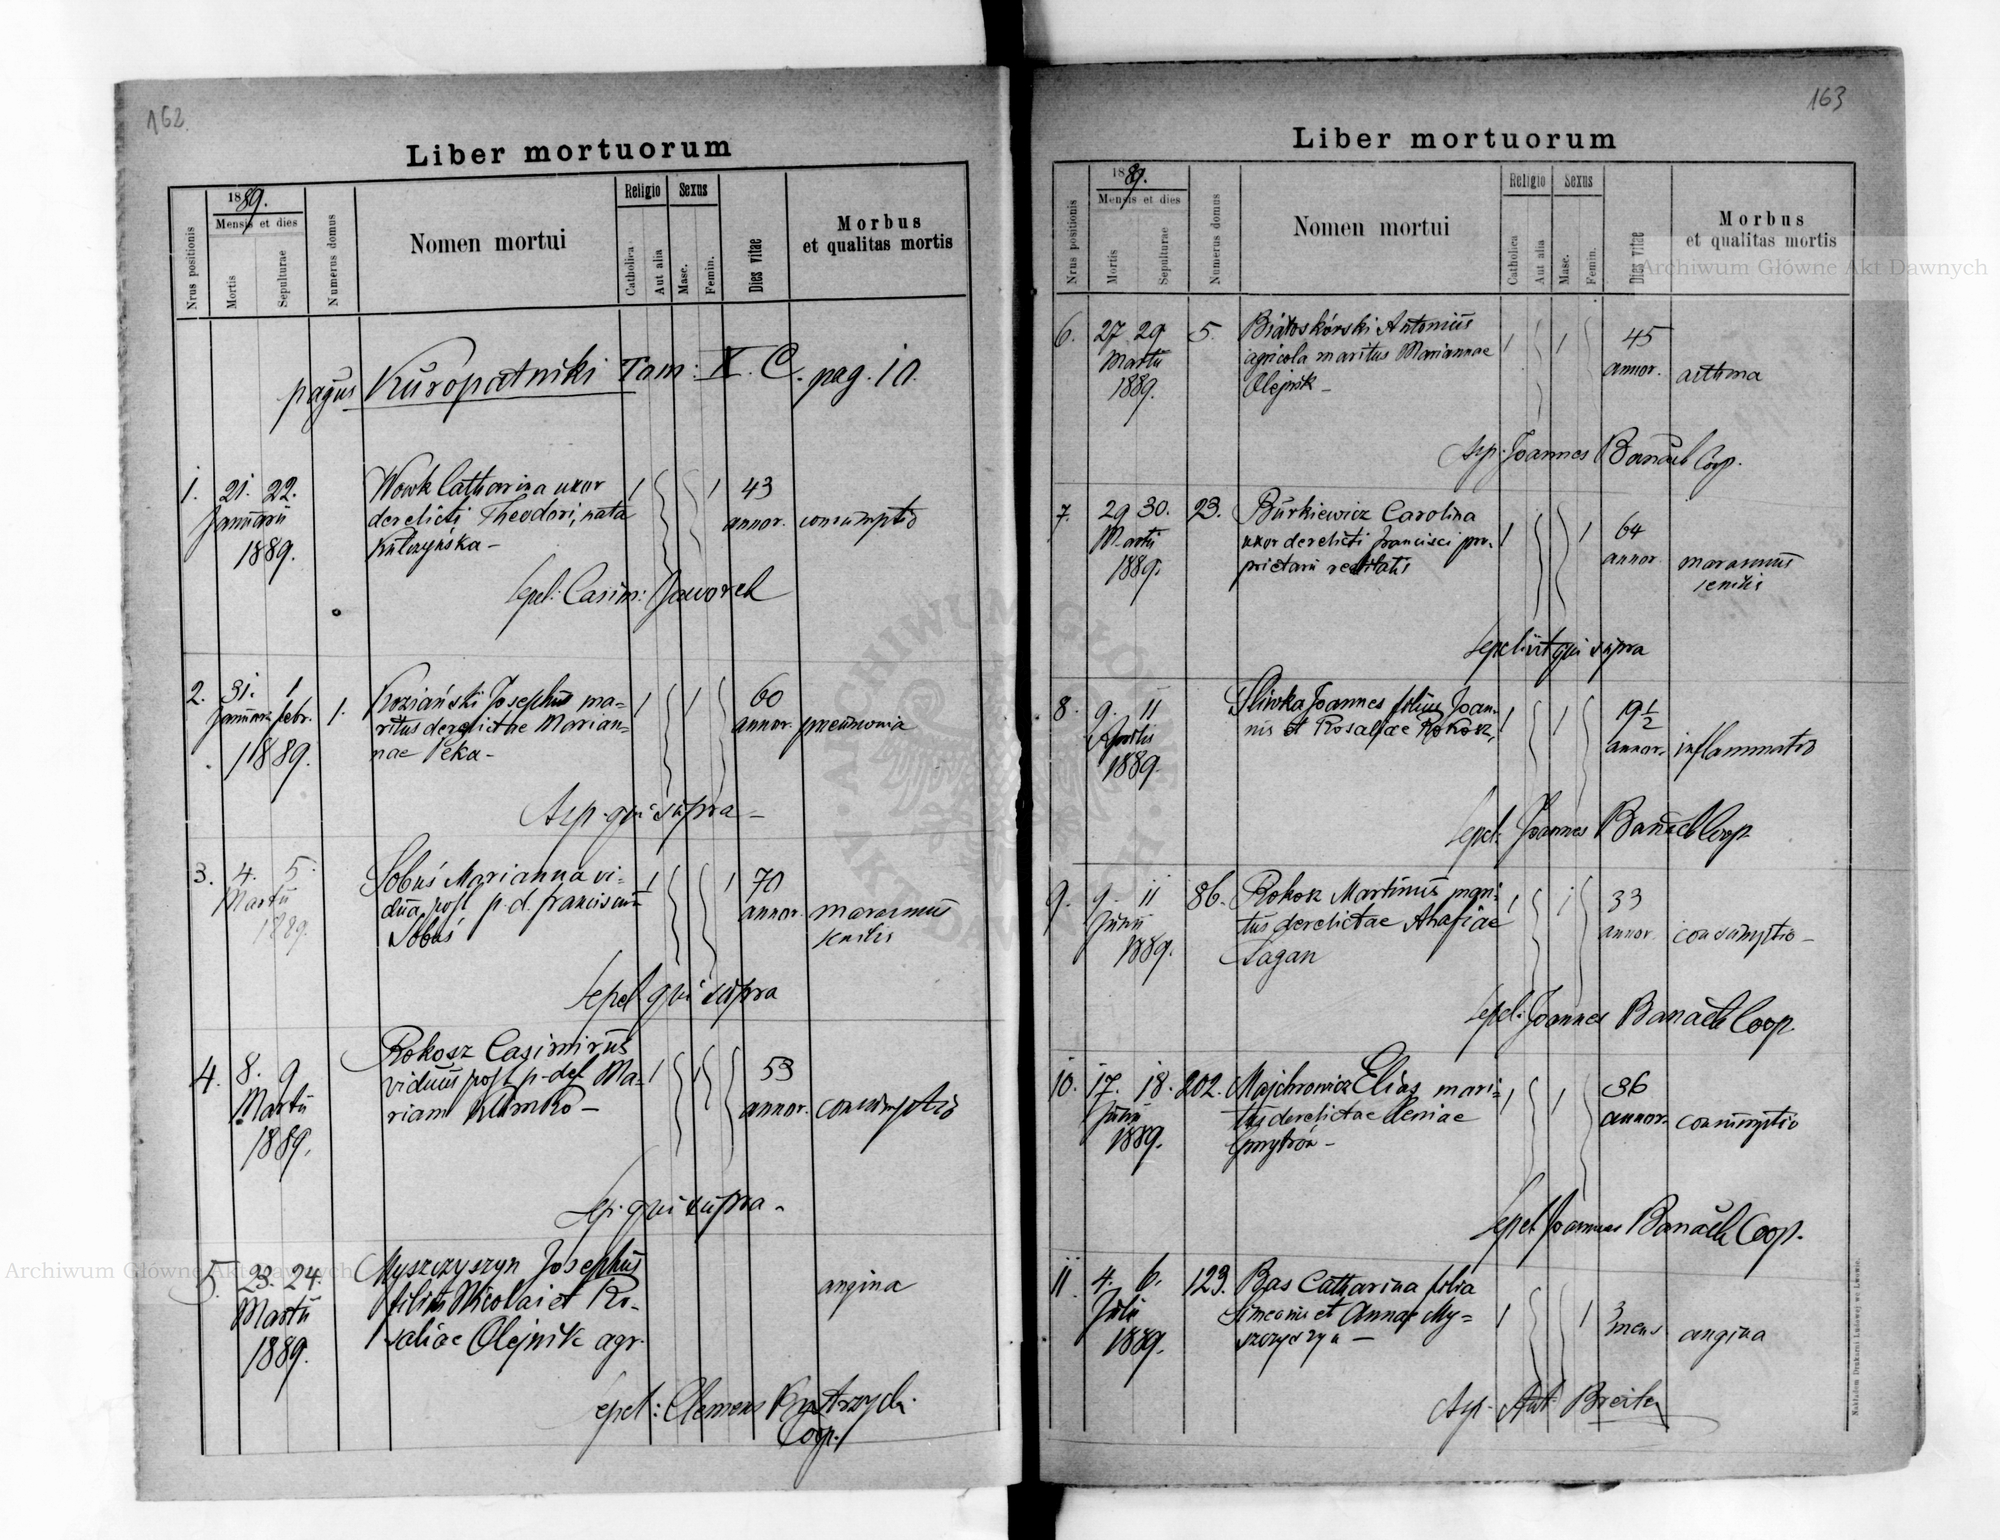 162
Liber mortuorum
Nrus positionis
1889.
Mensis et dies
Mortis
Sepulturae
Numerus domus
Nomen mortui
Religio
Catholica
Aut alia
Sexus
Masc.
Femin.
Dies vitae
Morbus
et qualitas mortis
pagus Kuropatniki Tom: X. C. pag. 10.
1. 21. 22. Wowk Catharina uxor 1 1 43
Januarii derelicti Theodori, nata annor. consumptio
1889. Kulczyńska -
sepel: Casim: Jaworek
2. 31. 1 1. Koziański Josephus ma= 1 1 60
Januar. febr. ritus derelictae Marian= annor. pneumonia
1889. nae Pęka -
Sep. qui supra -
3. 4. 5. Sobuś Marianna vi= 1 1 70
Martii dua post p. d. franciscum annor. marasmus
1889. Sobuś senilis
sepel qui supra
4. 8. 9 Rokosz Casimirus
Martii viduus post p. def. Ma= 1 1 53
1889. riam Klimko - annor. consumptio
Sep. qui supra -
5. 23. 24. Myszczyszyn Josephus angina
Martii filius Nicolai et Ro-
1889. saliae Olejnik agr.
sepel: Clemens
Coop.
163
Liber mortuorum
Nrus positionis
1889.
Mensis et dies
Mortis
Sepulturae
Numerus domus
Nomen mortui
Religio
Catholica
Aut alia
Sexus
Masc.
Femin.
Dies vitae
Morbus
et qualitas mortis
6. 27. 29 5. Białoskórski Antonius 1 1 45
Martii agricola maritus Mariannae annor. asthma
1889. Olejnik -
Sep. Joannes Banach Coop.
7. 29 30. 23. Burkiewicz Carolina 1 1 64
Martii uxor derelicti francisci pro- annor. marasmus
1889. prietarii realitatis senilis
sepelivit qui supra
8. 9. 11 Sliwka Joannes filius Joan- 1 1 19 1/2
Aprilis nis et Rosaliae Rokosz, annor. inflammatio
1889.
sepel. Joannes Banach Coop
9. 9. 11 86. Rokosz Martinus mari- 1 1 33
Junii tus derelictae Anastiae annor. consumptio -
1889. Sagan
sepel: Joannes Banach Coop.
10. 17. 18. 202. Majchrowicz Elias mari= 1 1 36
Junii tus derelictae Xeniae annor. consumptio
1889.
Sepel Joannes Banach Coop.
11 4. 6. 123. Bas Catharina filia
Julii Simeonis et Annae My= 1 1 3 mens angina
1889. szczyszyn -
Sep. Ant. Breiter
Nakładem Drukarni Ludowej we Lwowie.
Archiwum Główne Akt Dawnych
Archiwum Główne Akt Dawnych
ARCHIWUM GŁÓWNE AKT DAWNYCH